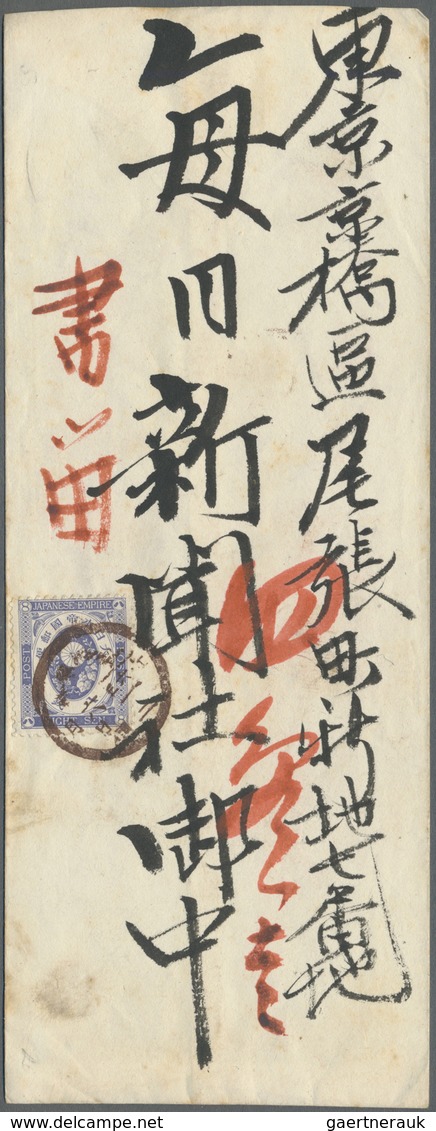 東京京橋區尾張町新地七番地
毎日新聞社御中
書留
JAPANESE EMPIRE
POST
EIGHT SEN
gaertnerauk